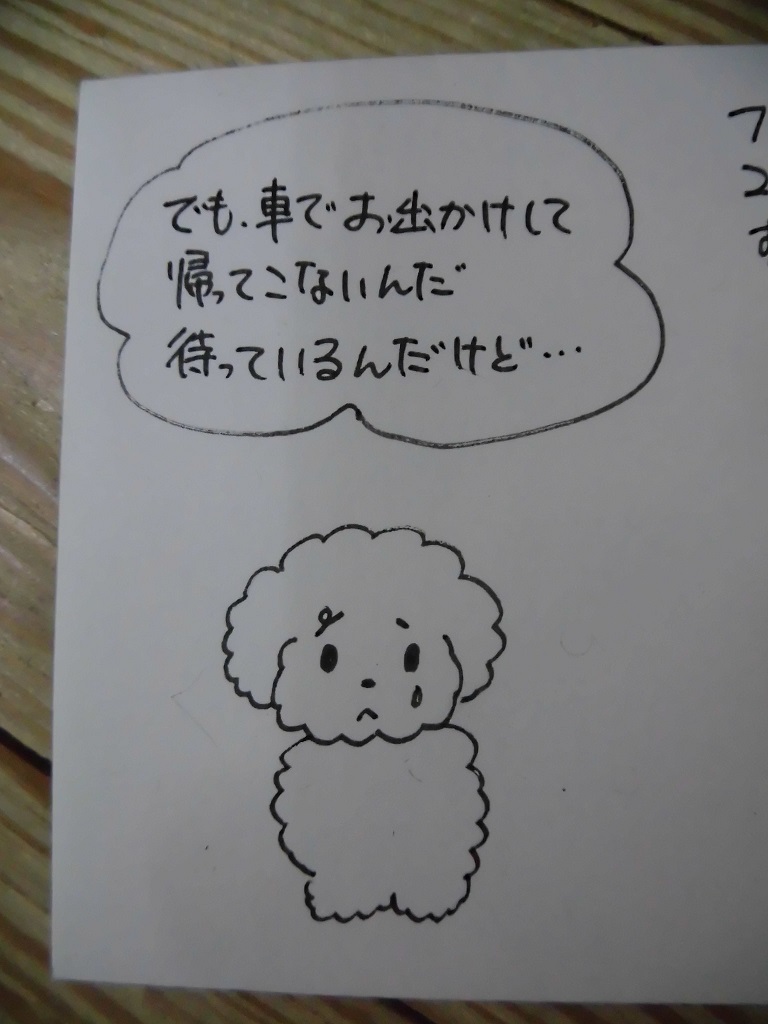 でも、車でお出かけして
帰ってこないんだ
待っているんだけど…